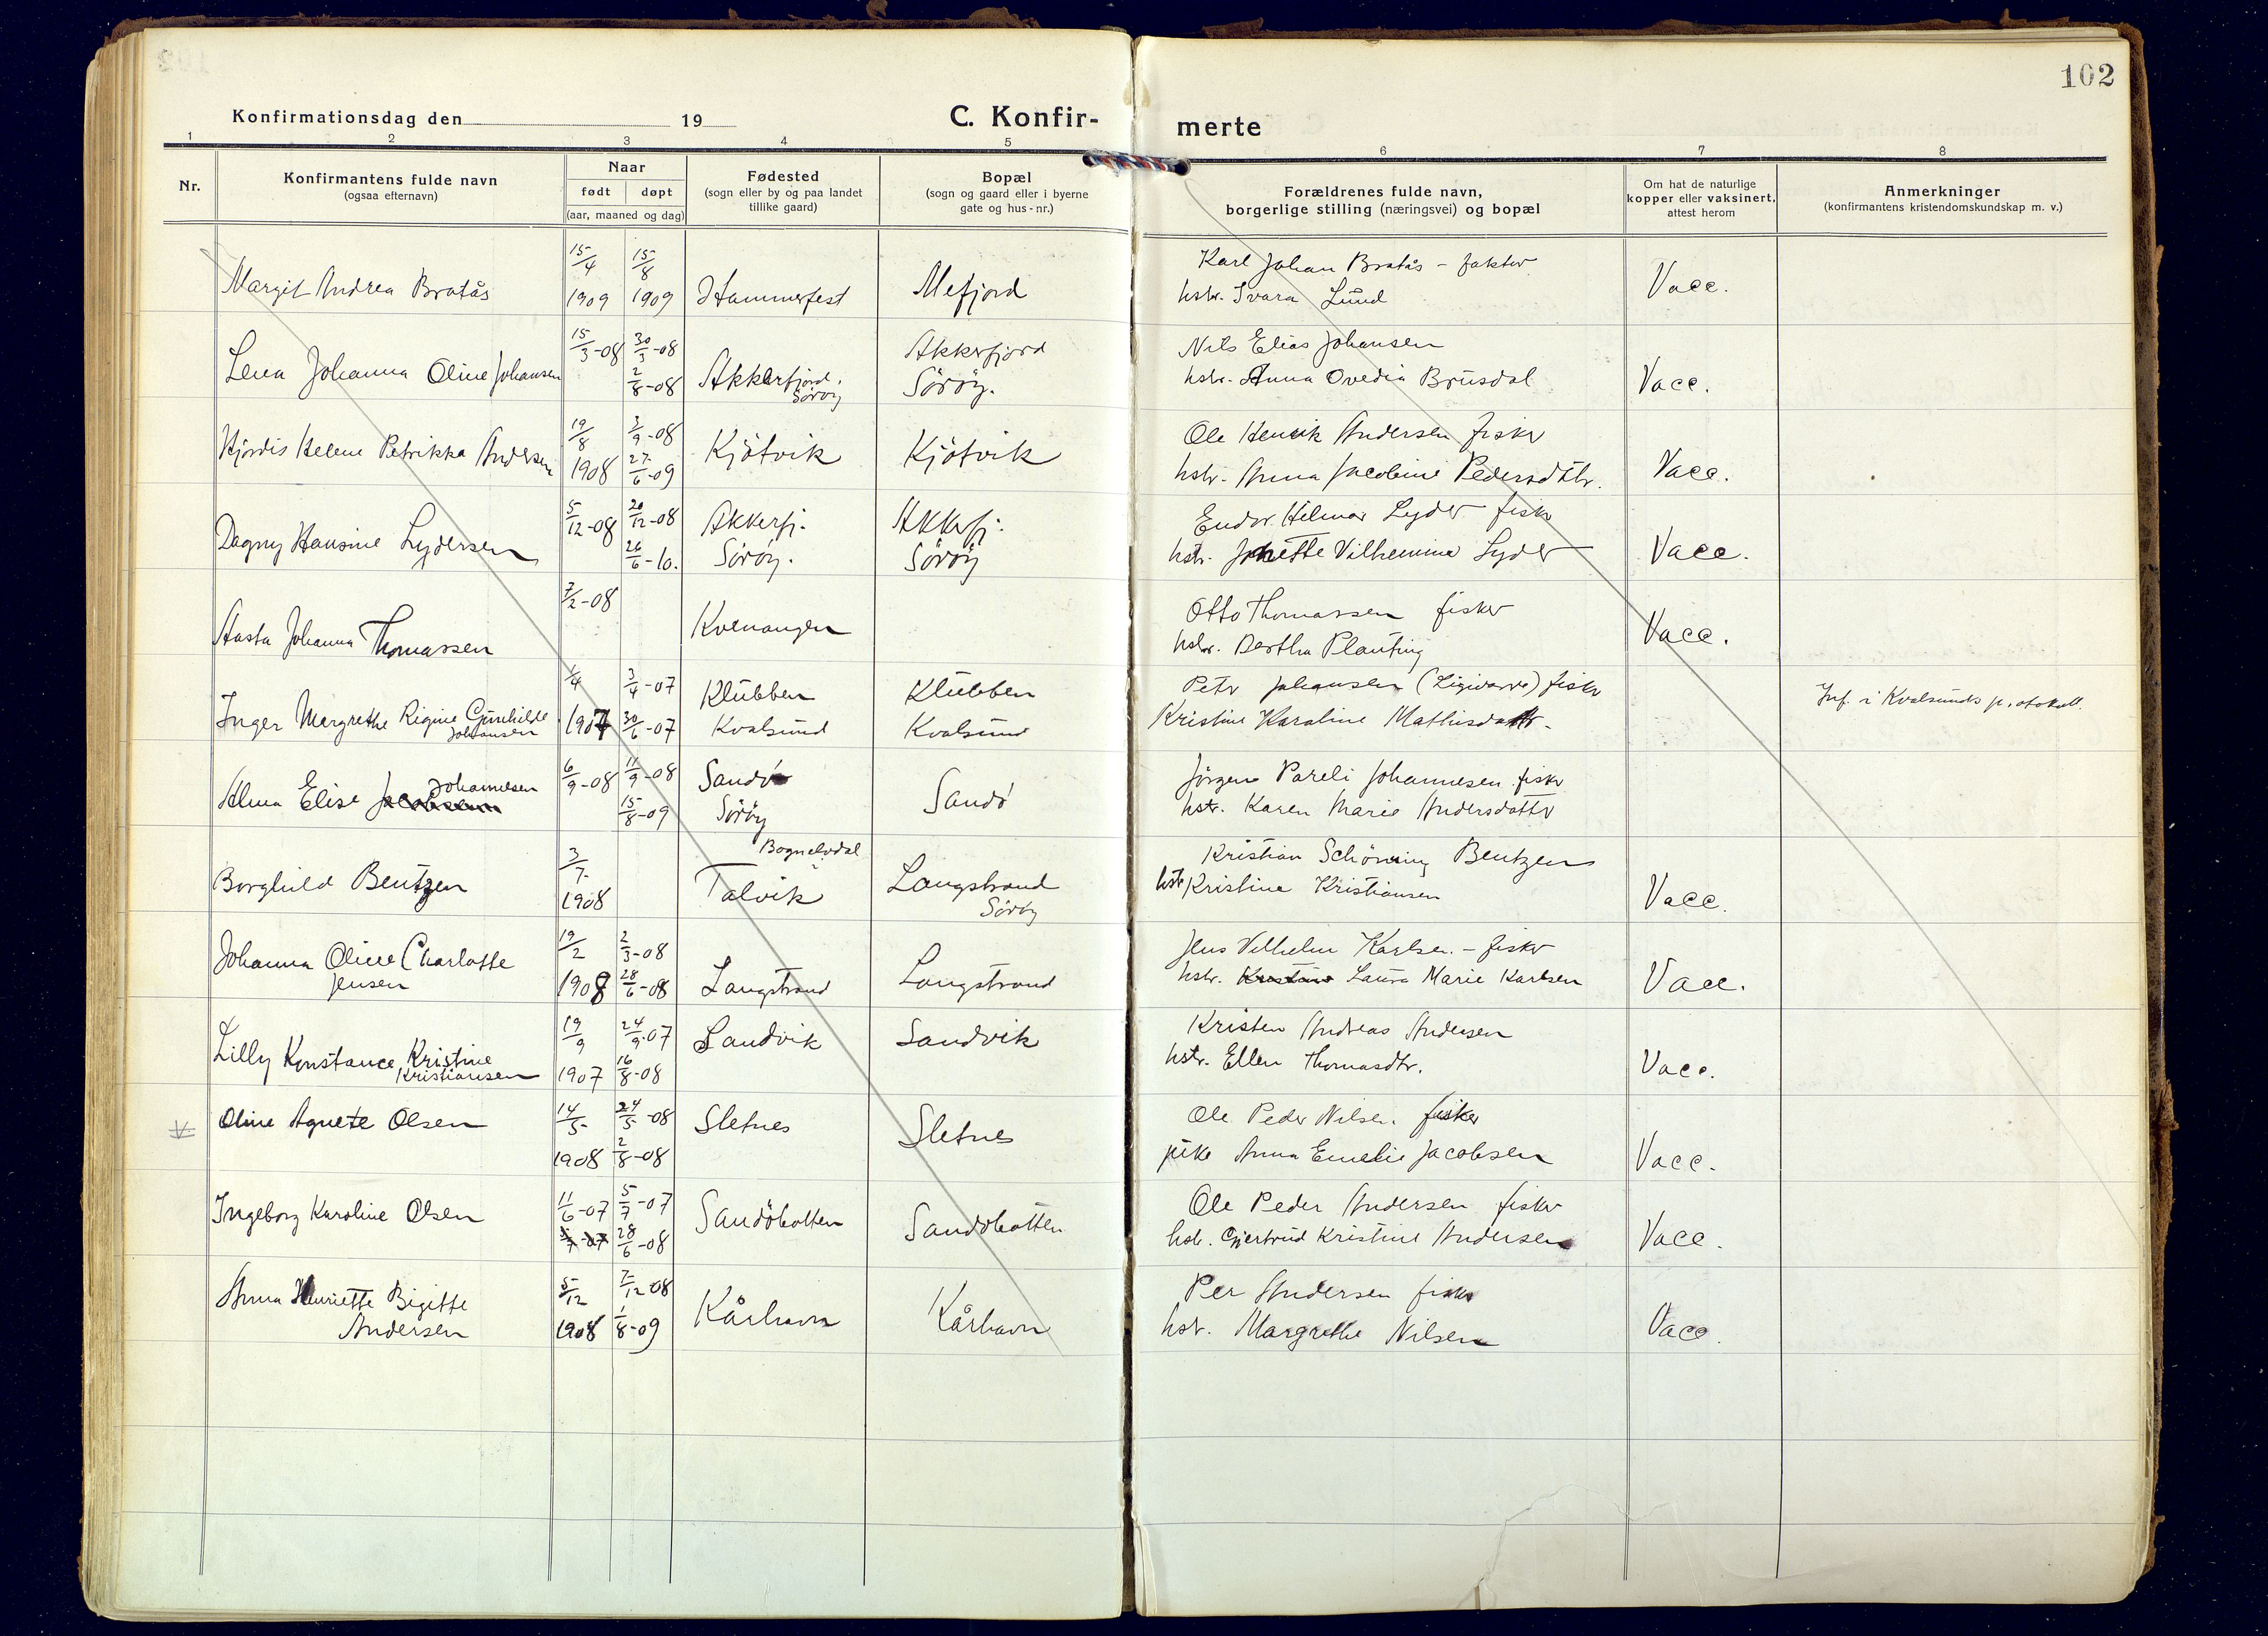 102
Konfirmationsdag den 19
C. Konfir-
merte
1 2 3 4 5 6 7 8
Nr.
Konfirmantens fulde navn
(ogsaa efternavn)
Naar
født døpt
(aar, maaned og dag)
Fødested
(sogn eller by og paa landet
tillike gaard)
Bopæl
(sogn og gaard eller i byerne
gate og hus-nr.)
Forældrenes fulde navn,
borgerlige stilling (næringsvei) og bopæl
Om hat de naturlige
kopper eller vaksinert,
attest herom
Anmerkninger
(konfirmantens kristendomskundskap m. v.)
15/4 15/8 Karl Johan Bratås - faktor
Margit Andrea Bratås 1909 1909 Hammerfest Mefjord hstr. Svara Lund Vacc.
15/3-08 30/3-08 Akkerfjord Nils Elias Johansen
Lena Johanna Oline Johansen 2/8-08 Akkerfjord. Söröy. hstr. Anna Ovedia Brusdal Vacc.
Söröy
19/8 3/9-08 Ole Henrik Andersen fisker
Hjördis Helene Petrikka Andersen 1908 27/6-09 Kjötvik Kjötvik hstr. Anna Jacobine Pedersdtr. Vacc.
5/12-08 20/12-08 Akkerfj. Akkerfj. Endor Hilmar Lyder fisker
Dagny Hansine Lydersen 26/6-10. Söröy. Söröy hstr. Jonette Vilhemine Lyder Vacc.
7/2-08 Otto Thomassen fisker
Aasta Johanna Thomassen Kvenangen hstr. Bertha Planting Vacc.
1/4 3/4-07 Klubben Klubben Peter Johansen fisker
Inger Margrethe Regine Gunhilde 1907 30/6-07 Kvalsund Kvalsund Kristine Karoline Mathisdatter. Inf. i Kvalsunds protokoll.
Johansen
Johannesen 6/9-08 11/9-08 Sandö Jörgen Pareli Johannesen fisker
Alma Elise Jacobsen 15/8-09 Söröy Sandö hstr. Karen Marie Andersdatter
Bognelvdal
3/7 Kristian Schöning Bentzen
Borghild Bentzen 1908 Talvik Langstrand hstr Kristine Kristiansen Vacc.
Söröy
19/2 2/3-08 Jens Vilhelm Karlsen - fisker
Johanna Oline Charlotte 1908 28/6-08 Langstrand Langstrand hstr. Kristine Laura Marie Karlsen Vacc.
Jensen
19/9 24/9-07 Sandvik Sandvik Kristen Andreas Andersen
Lilly Konstance Kristine 1907 16/8-08 hstr. Ellen Thomasdtr. Vacc.
Kristiansen
Oline Agnete Olsen 14/5 24/5-08 Sletnes Sletnes Ole Peder Nilsen fisker
1908 2/8-08 pike Anna Emelie Jacobsen Vacc.
Ingeborg Karoline Olsen 11/6-07 5/7-07 Sandöbotten Sandöbotten Ole Peder Andersen fisker
5/7-07 28/6-08 hstr. Gjertrud Kristine Andersen Vacc.
Anna Henriette Bigitte 5/12 7/12 08 Kårhavn Kårhavn Per Andersen fisker
Andersen 1908 1/8-09 hstr. Margrethe Nilsen Vacc.